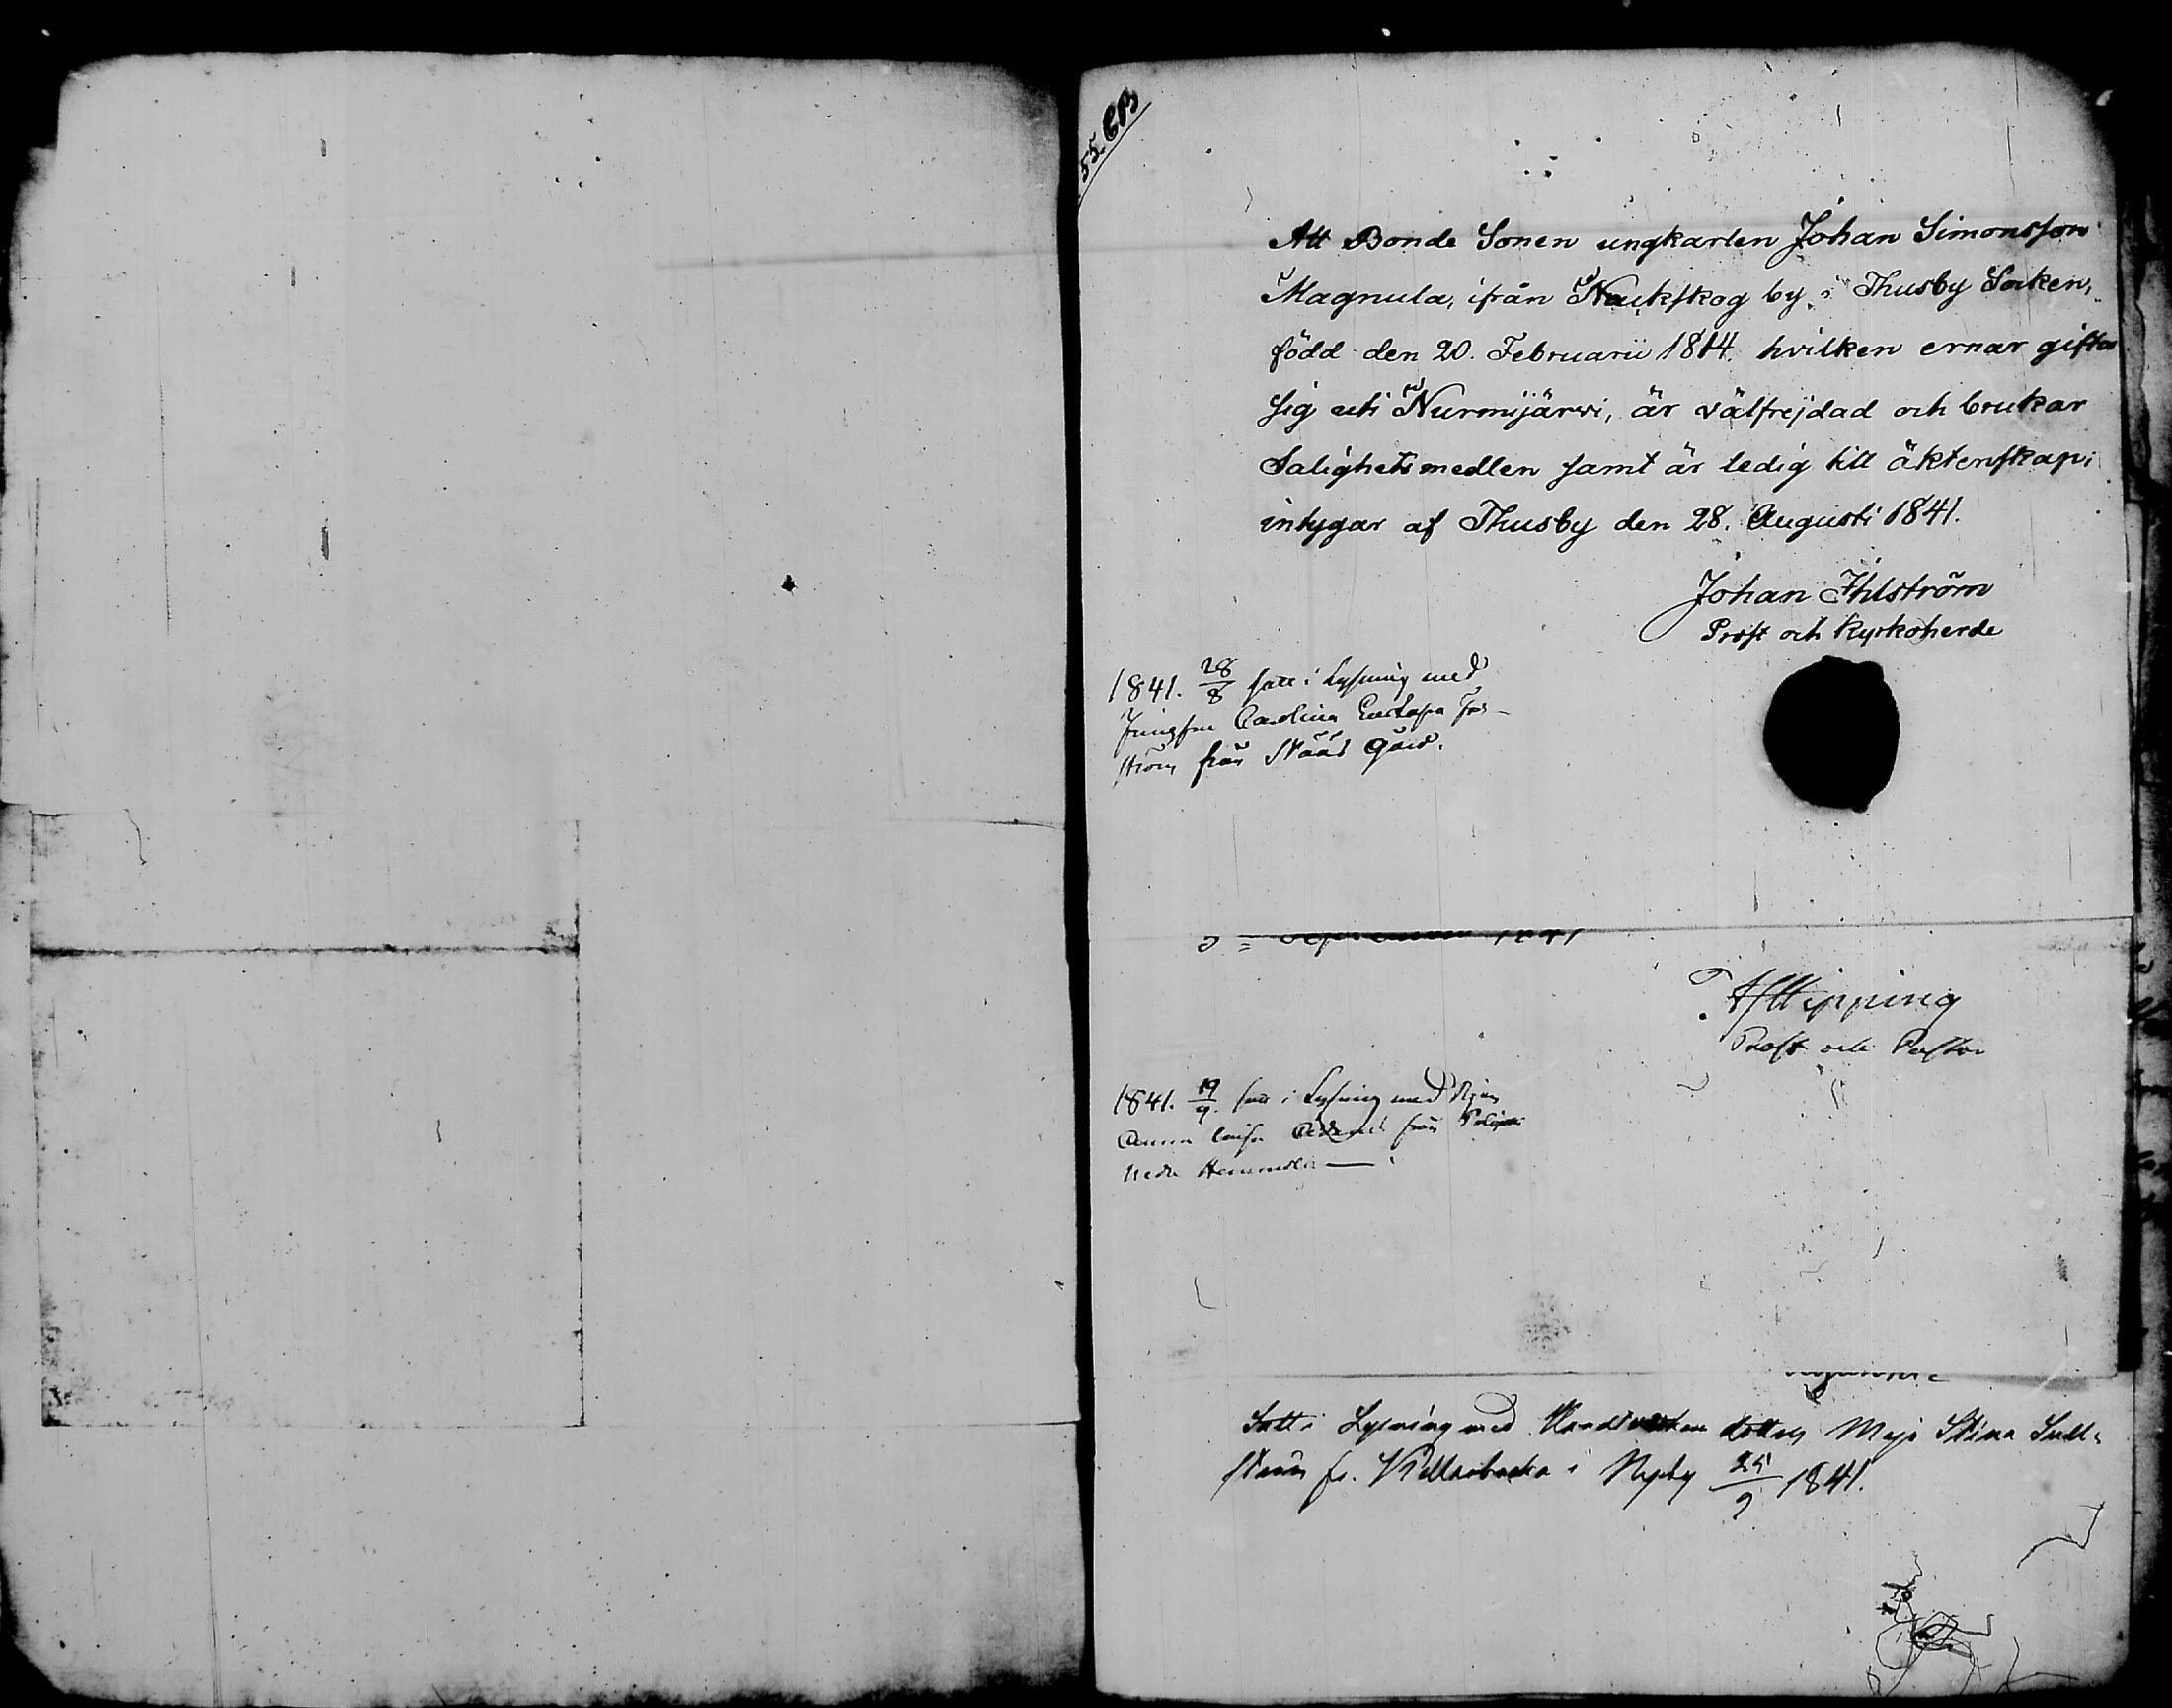 55. CB
Att Bonde Sonen ungkarlen Johan Simonsson
Magnula, ifrån Nackskog by i Thusby Socken,
född den 20. Februarii 1814. hvilken ernar gifta
sig uti Nurmijärwi, är välfrejdad och brukar
Salighetsmedlen samt är ledig till äktenskap;
intygar af Thusby den 28. Augusti 1841.
Johan Ihlström
Prost och Kyrkoherde
1841. 28/8 satt i Lysning med
Jungfru Carolina
ström från Nääs Gård.
September 1841
Prost och Pastor
1841. 19/9. satt i Lysning med Pigan
Anna från
Nedre
Satt i Lysning med dotter Maja Stina
fr. i Nyby 25/9 1841.